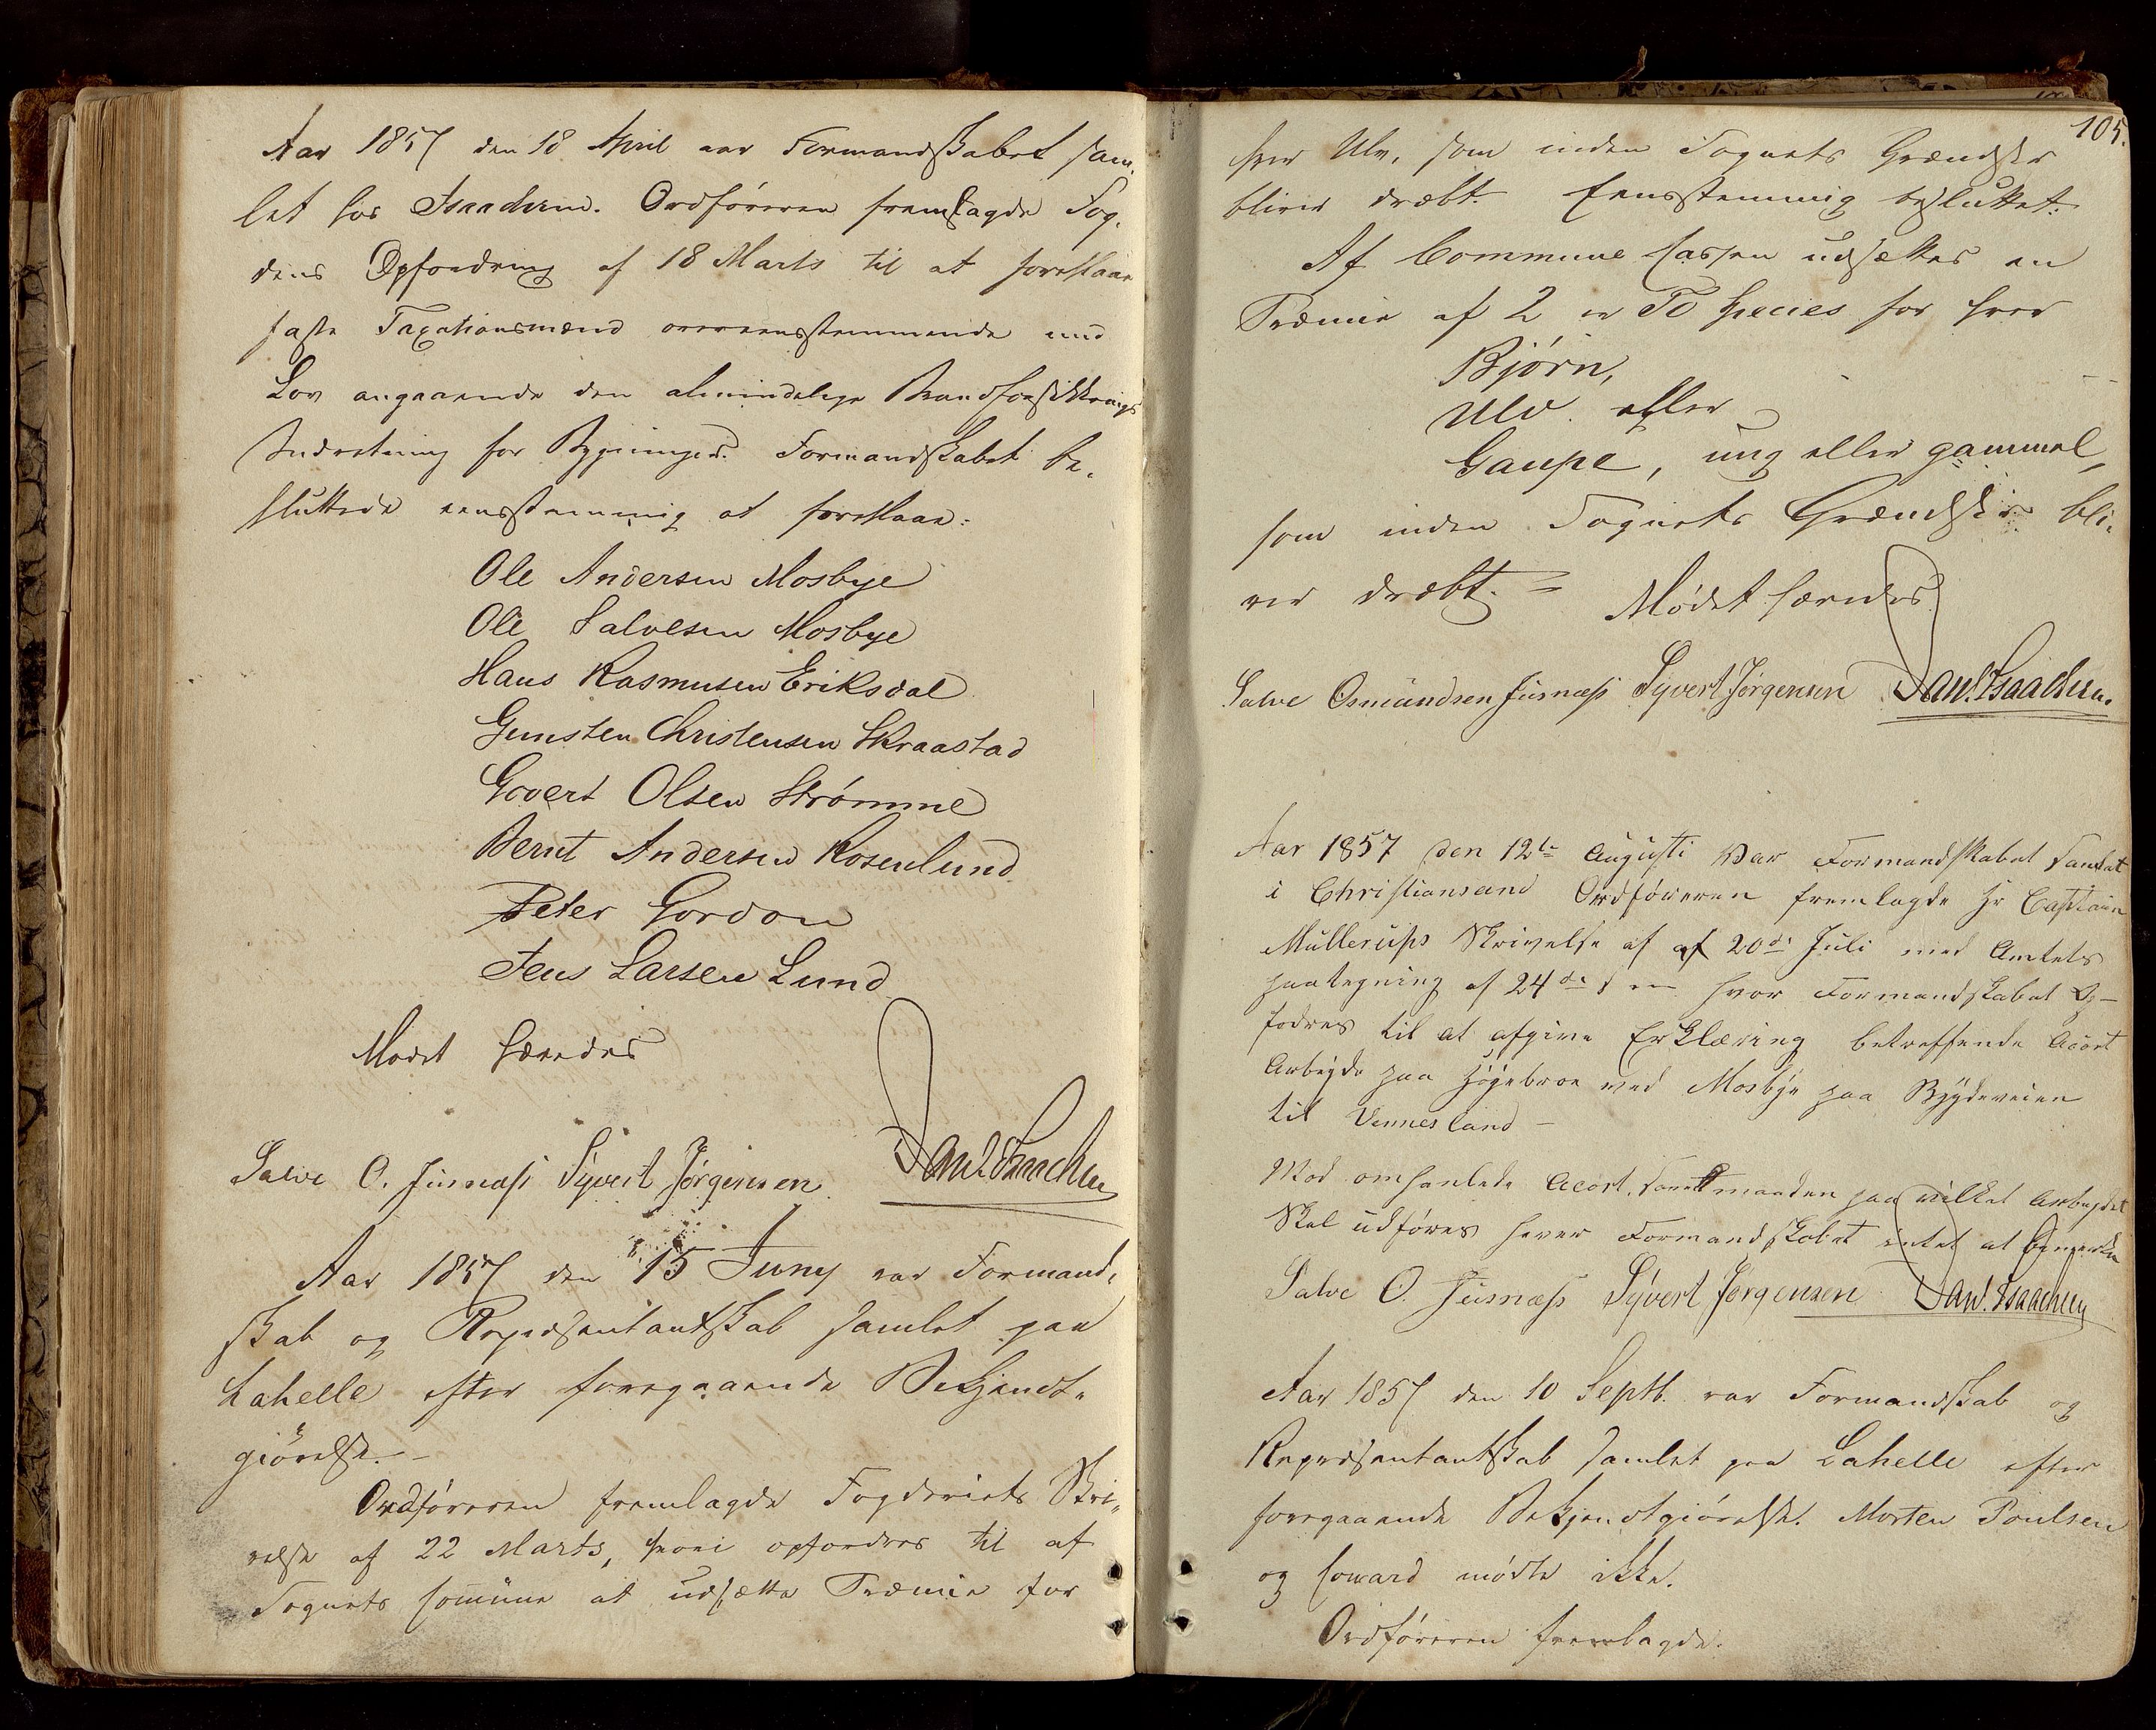 Aar 1857 den 18 April var Formandskabet sam,
let hos Isaachsen. Ordføreren fremlagde Fog,
dens Opfordring af 18 Marts til at foreslaae
faste Taxationsmænd overeensstemmende med
Lov angaaende den almindelige Brandforsikkrings
Indretning for Bygninger. Formandskabet be,
sluttede eensstemmig at foreslaae:
Ole Andersen Mosbye
Ole Salvesen Mosbye
Hans Rasmusen Eriksdal
Gunsten Christensen Skraastad
Govert Olsen Strømme
Bernt Andersen Rosenlund
Peter Gordon
Jens Larsen Lund
Mødet hævedes
Salve O. Jusnæs Syvert Jørgensen Dan. Isaachsen
Aar 1857 den 15 Juny var Formand,
skab og Repræsentantskab samlet paa
Lahelle efter foregaaende Bekjendt,
giørelse. –
Ordføreren fremlagde Fogderiets Skri,
velse af 22 Marts, hvori opfordres til af
Sognets Comüne at udsætte Præmie for
105.
hver Ulv, som inden Sognets Grændser
bliver dræbt. Eensstemmig besluttet:
Af Commune Cassen udsættes en
Præmie af 2 er To Species for hver
Bjørn,
Ulv eller
Gaupe, ung eller gammel,
som inden Sognets Grændser bli,
ver dræbt. = Mødet hævedes.
Salve Osmundsen Jusnæs Syvert Jørgensen Dan. Isaachsen.
Aar 1857 den 12te Augusti var Formandskabet Samlet
i Christiansand Ordføreren fremlagde Hr Captain
Mullerups Skrivelse af af 20de Juli med Amtets
paategning af 24de hvor Formandskabet Op-
fodres til at afgive Erklæring betreffende Acort
Arbeyde paa Høyebroe ved Mosbye paa Bygdeveien
til Vennesland –
Mod omhanlede Acort, samt maaden paa vilket Arbeydet
Skal udføres haver Formandskabet intet at bemærke
Salve O. Jusnæs Syvert Jørgensen Dan. Isaachsen
Aar 1857 den 10 Septb. var Formandskab og
Repræsentantskab samlet paa Lahelle efter
foregaaende Bekjendtgiørelse. Morten Poulsen
og Coward mødte ikke.
Ordføreren fremlagde: